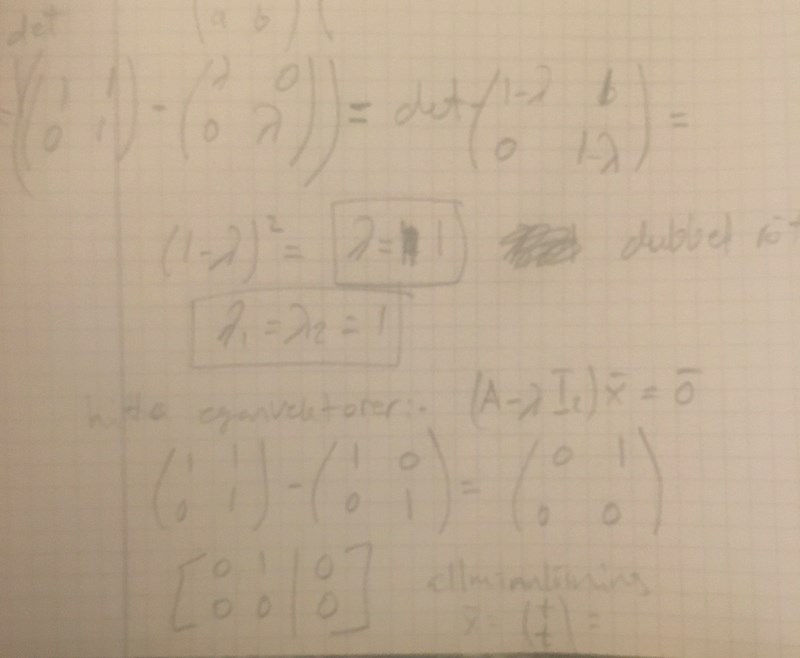 det (a b) (
= ((1 1; 0 1) - (λ 0; 0 λ)) = det (1-λ 1; 0 1-λ) =
(1-λ)² = λ = 1 dubbel rot
λ₁ = λ₂ = 1
hitta egenvektorer: (A - λ I₂) x̄ = 0̄
(1 1; 0 1) - (1 0; 0 1) = (0 1; 0 0)
[0 1 | 0; 0 0 | 0]
x̄ = (t; t) =